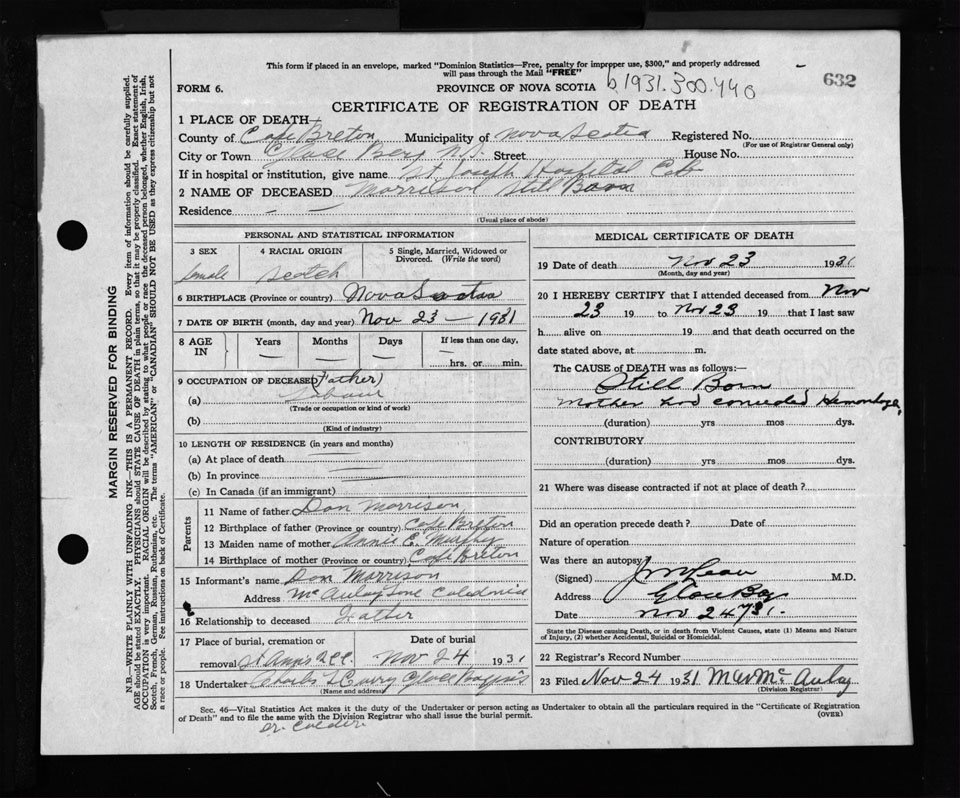 This form if placed in an envelope, marked "Dominion Statistics—Free, penalty for improper use, $300," and properly addressed
will pass through the Mail "FREE"
632
FORM 6.
PROVINCE OF NOVA SCOTIA
b 1931.300.440
CERTIFICATE OF REGISTRATION OF DEATH
1 PLACE OF DEATH—
County of Cape Breton Municipality of Nova Scotia Registered No.
(For use of Registrar General only)
City or Town Glace Bay N.S. Street House No.
If in hospital or institution, give name St. Joseph Hospital C.B.
2 NAME OF DECEASED Morrison Still Born
Residence — —
(Usual place of abode)
PERSONAL AND STATISTICAL INFORMATION
3 SEX
4 RACIAL ORIGIN
5 Single, Married, Widowed or
Divorced. (Write the word)
Female Scotch
6 BIRTHPLACE (Province or country) Nova Scotia
7 DATE OF BIRTH (month, day and year) Nov 23 - 1931
8 AGE IN
Years Months Days If less than one day,
— — — — hrs. or min.
9 OCCUPATION OF DECEASED (Father)
(a) Labour
(Trade or occupation or kind of work)
(b)
(Kind of industry)
10 LENGTH OF RESIDENCE (in years and months)
(a) At place of death
(b) In province
(c) In Canada (if an immigrant)
Parents
11 Name of father Dan Morrison
12 Birthplace of father (Province or country) Cape Breton
13 Maiden name of mother Annie E. Murphy
14 Birthplace of mother (Province or country) Cape Breton
15 Informant's name Dan Morrison
Address McAulay Lane Caledonia
16 Relationship to deceased Father
17 Place of burial, cremation or
Date of burial
removal St Anns Nov 24 1931
18 Undertaker Charles Curry Glace Bay N.S
(Name and address)
MEDICAL CERTIFICATE OF DEATH
19 Date of death Nov 23 1931
(Month, day and year)
20 I HEREBY CERTIFY that I attended deceased from Nov
23 19 to Nov 23 19 that I last saw
h alive on 19 and that death occurred on the
date stated above, at m.
The CAUSE of DEATH was as follows:—
Still Born
Mother had concealed Hemorrhage,
(duration) yrs mos dys.
CONTRIBUTORY
(duration) yrs mos dys.
21 Where was disease contracted if not at place of death?
Did an operation precede death? Date of
Nature of operation
Was there an autopsy
(Signed) M.D.
Address Glace Bay
Date Nov 24 / 31.
State the Disease causing Death, or in death from Violent Causes, state (1) Means and Nature
of Injury, (2) whether Accidental, Suicidal or Homicidal.
22 Registrar's Record Number
23 Filed Nov 24 1931 McAulay
(Division Registrar)
Sec. 46—Vital Statistics Act makes it the duty of the Undertaker or person acting as Undertaker to obtain all the particulars required in the "Certificate of Registration
of Death" and to file the same with the Division Registrar who shall issue the burial permit.
(OVER)
Dr. Calder
MARGIN RESERVED FOR BINDING
N.B.—WRITE PLAINLY WITH UNFADING INK—THIS IS A PERMANENT RECORD. Every item of information should be carefully supplied.
AGE should be stated EXACTLY. PHYSICIANS should STATE CAUSE OF DEATH in plain terms, so that it may be properly classified. Exact statement of
OCCUPATION is very important. RACIAL ORIGIN will be described by stating to what people or race the deceased person belonged, whether English, Irish,
Scotch, French, German, Russian, Ruthenian, etc. The terms "AMERICAN" or "CANADIAN" SHOULD NOT BE USED as they express citizenship but not
a race or people. Fee instructions on back of Certificate.